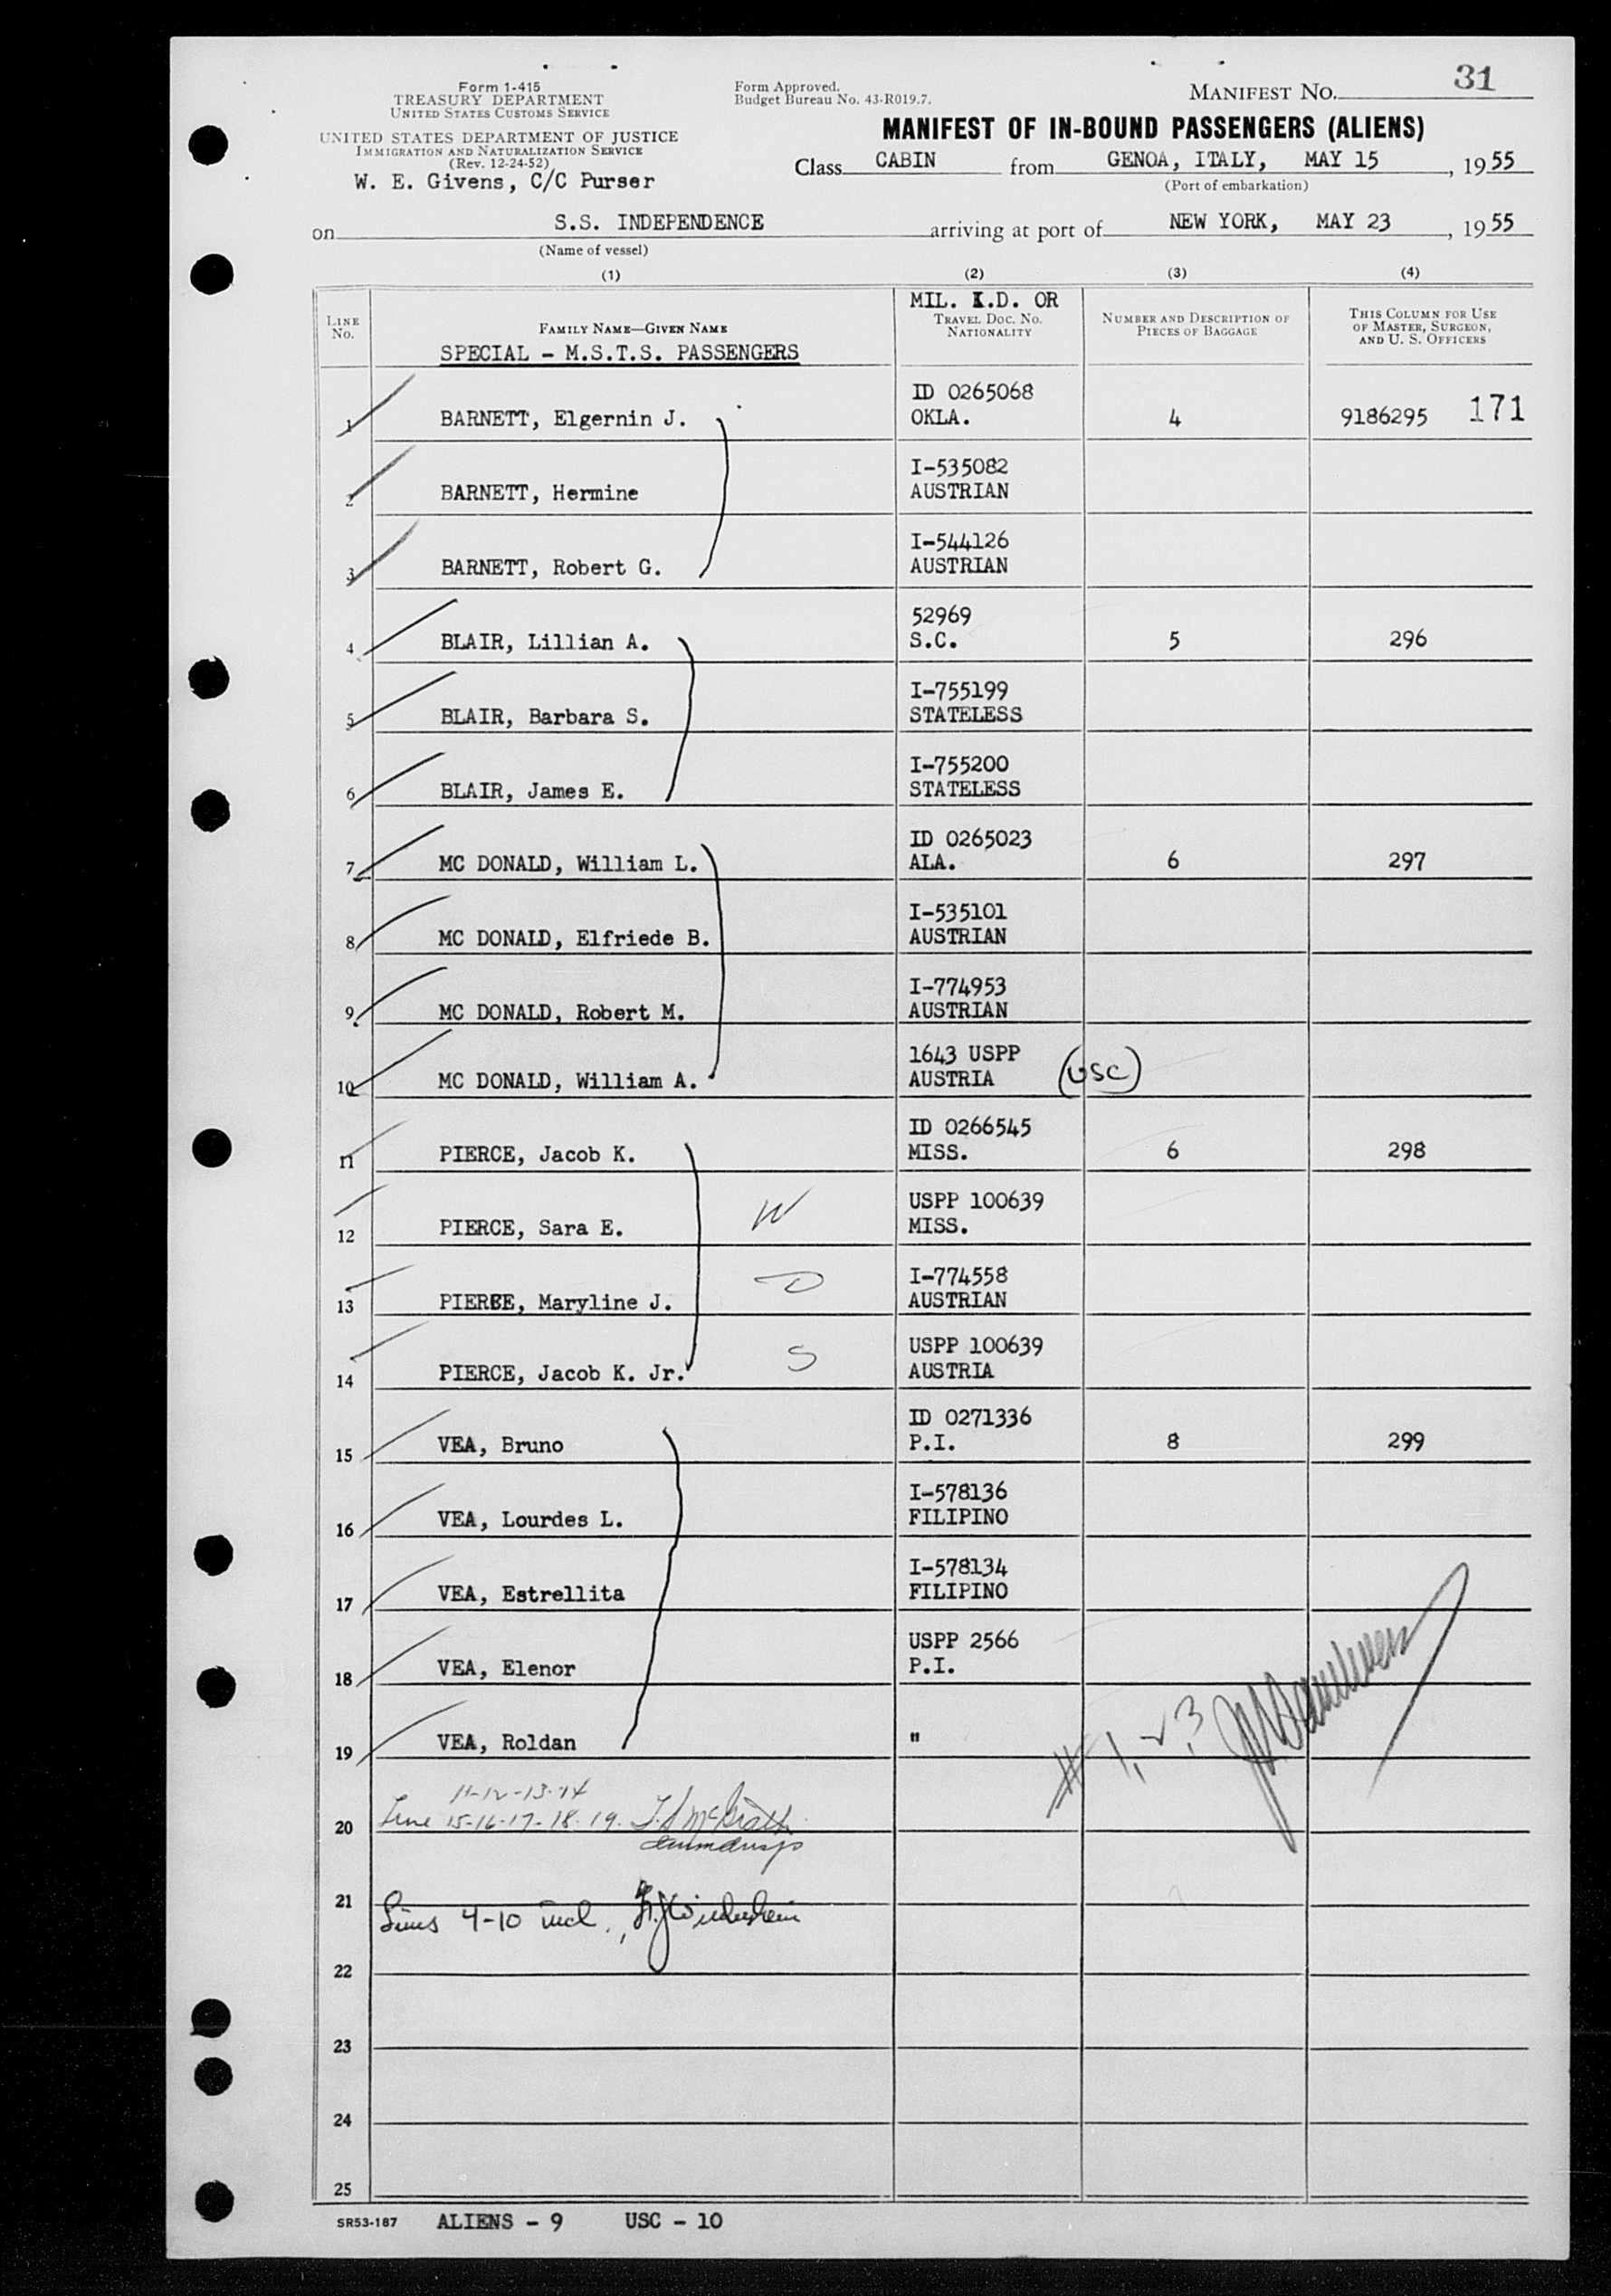 31
Form 1-415
TREASURY DEPARTMENT
UNITED STATES CUSTOMS SERVICE
Form Approved.
Budget Bureau No. 43-R019.7.
MANIFEST NO.
UNITED STATES DEPARTMENT OF JUSTICE
IMMIGRATION AND NATURALIZATION SERVICE
(Rev. 12-24-52)
W. E. Givens, C/C Purser
MANIFEST OF IN-BOUND PASSENGERS (ALIENS)
Class CABIN from GENOA, ITALY, MAY 15, 1955
(Port of embarkation)
on S.S. INDEPENDENCE arriving at port of NEW YORK, MAY 23, 1955
(Name of vessel)
(1) (2) (3) (4)
LINE NO.
FAMILY NAME—GIVEN NAME
SPECIAL - M.S.T.S. PASSENGERS
MIL. I.D. OR
TRAVEL DOC. NO.
NATIONALITY
NUMBER AND DESCRIPTION OF
PIECES OF BAGGAGE
THIS COLUMN FOR USE
OF MASTER, SURGEON,
AND U. S. OFFICERS
ID 0265068
1 BARNETT, Elgernin J. OKLA. 4 9186295 171
I-535082
2 BARNETT, Hermine AUSTRIAN
I-544126
3 BARNETT, Robert G. AUSTRIAN
52969
4 BLAIR, Lillian A. S.C. 5 296
I-755199
5 BLAIR, Barbara S. STATELESS
I-755200
6 BLAIR, James E. STATELESS
ID 0265023
7 MC DONALD, William L. ALA. 6 297
I-535101
8 MC DONALD, Elfriede B. AUSTRIAN
I-774953
9 MC DONALD, Robert M. AUSTRIAN
1643 USPP
10 MC DONALD, William A. AUSTRIA (USC)
ID 0266545
11 PIERCE, Jacob K. MISS. 6 298
USPP 100639
12 PIERCE, Sara E. W MISS.
I-774558
13 PIERCE, Maryline J. D AUSTRIAN
USPP 100639
14 PIERCE, Jacob K. Jr. S AUSTRIA
ID 0271336
15 VEA, Bruno P.I. 8 299
I-578136
16 VEA, Lourdes L. FILIPINO
I-578134
17 VEA, Estrellita FILIPINO
USPP 2566
18 VEA, Elenor P.I.
19 VEA, Roldan "
# 1, 2, 3
11-12-13-14
20 Line 15-16-17-18-19.
21
Lines 4-10 incl.
22
23
24
25
SR53-187 ALIENS - 9 USC - 10